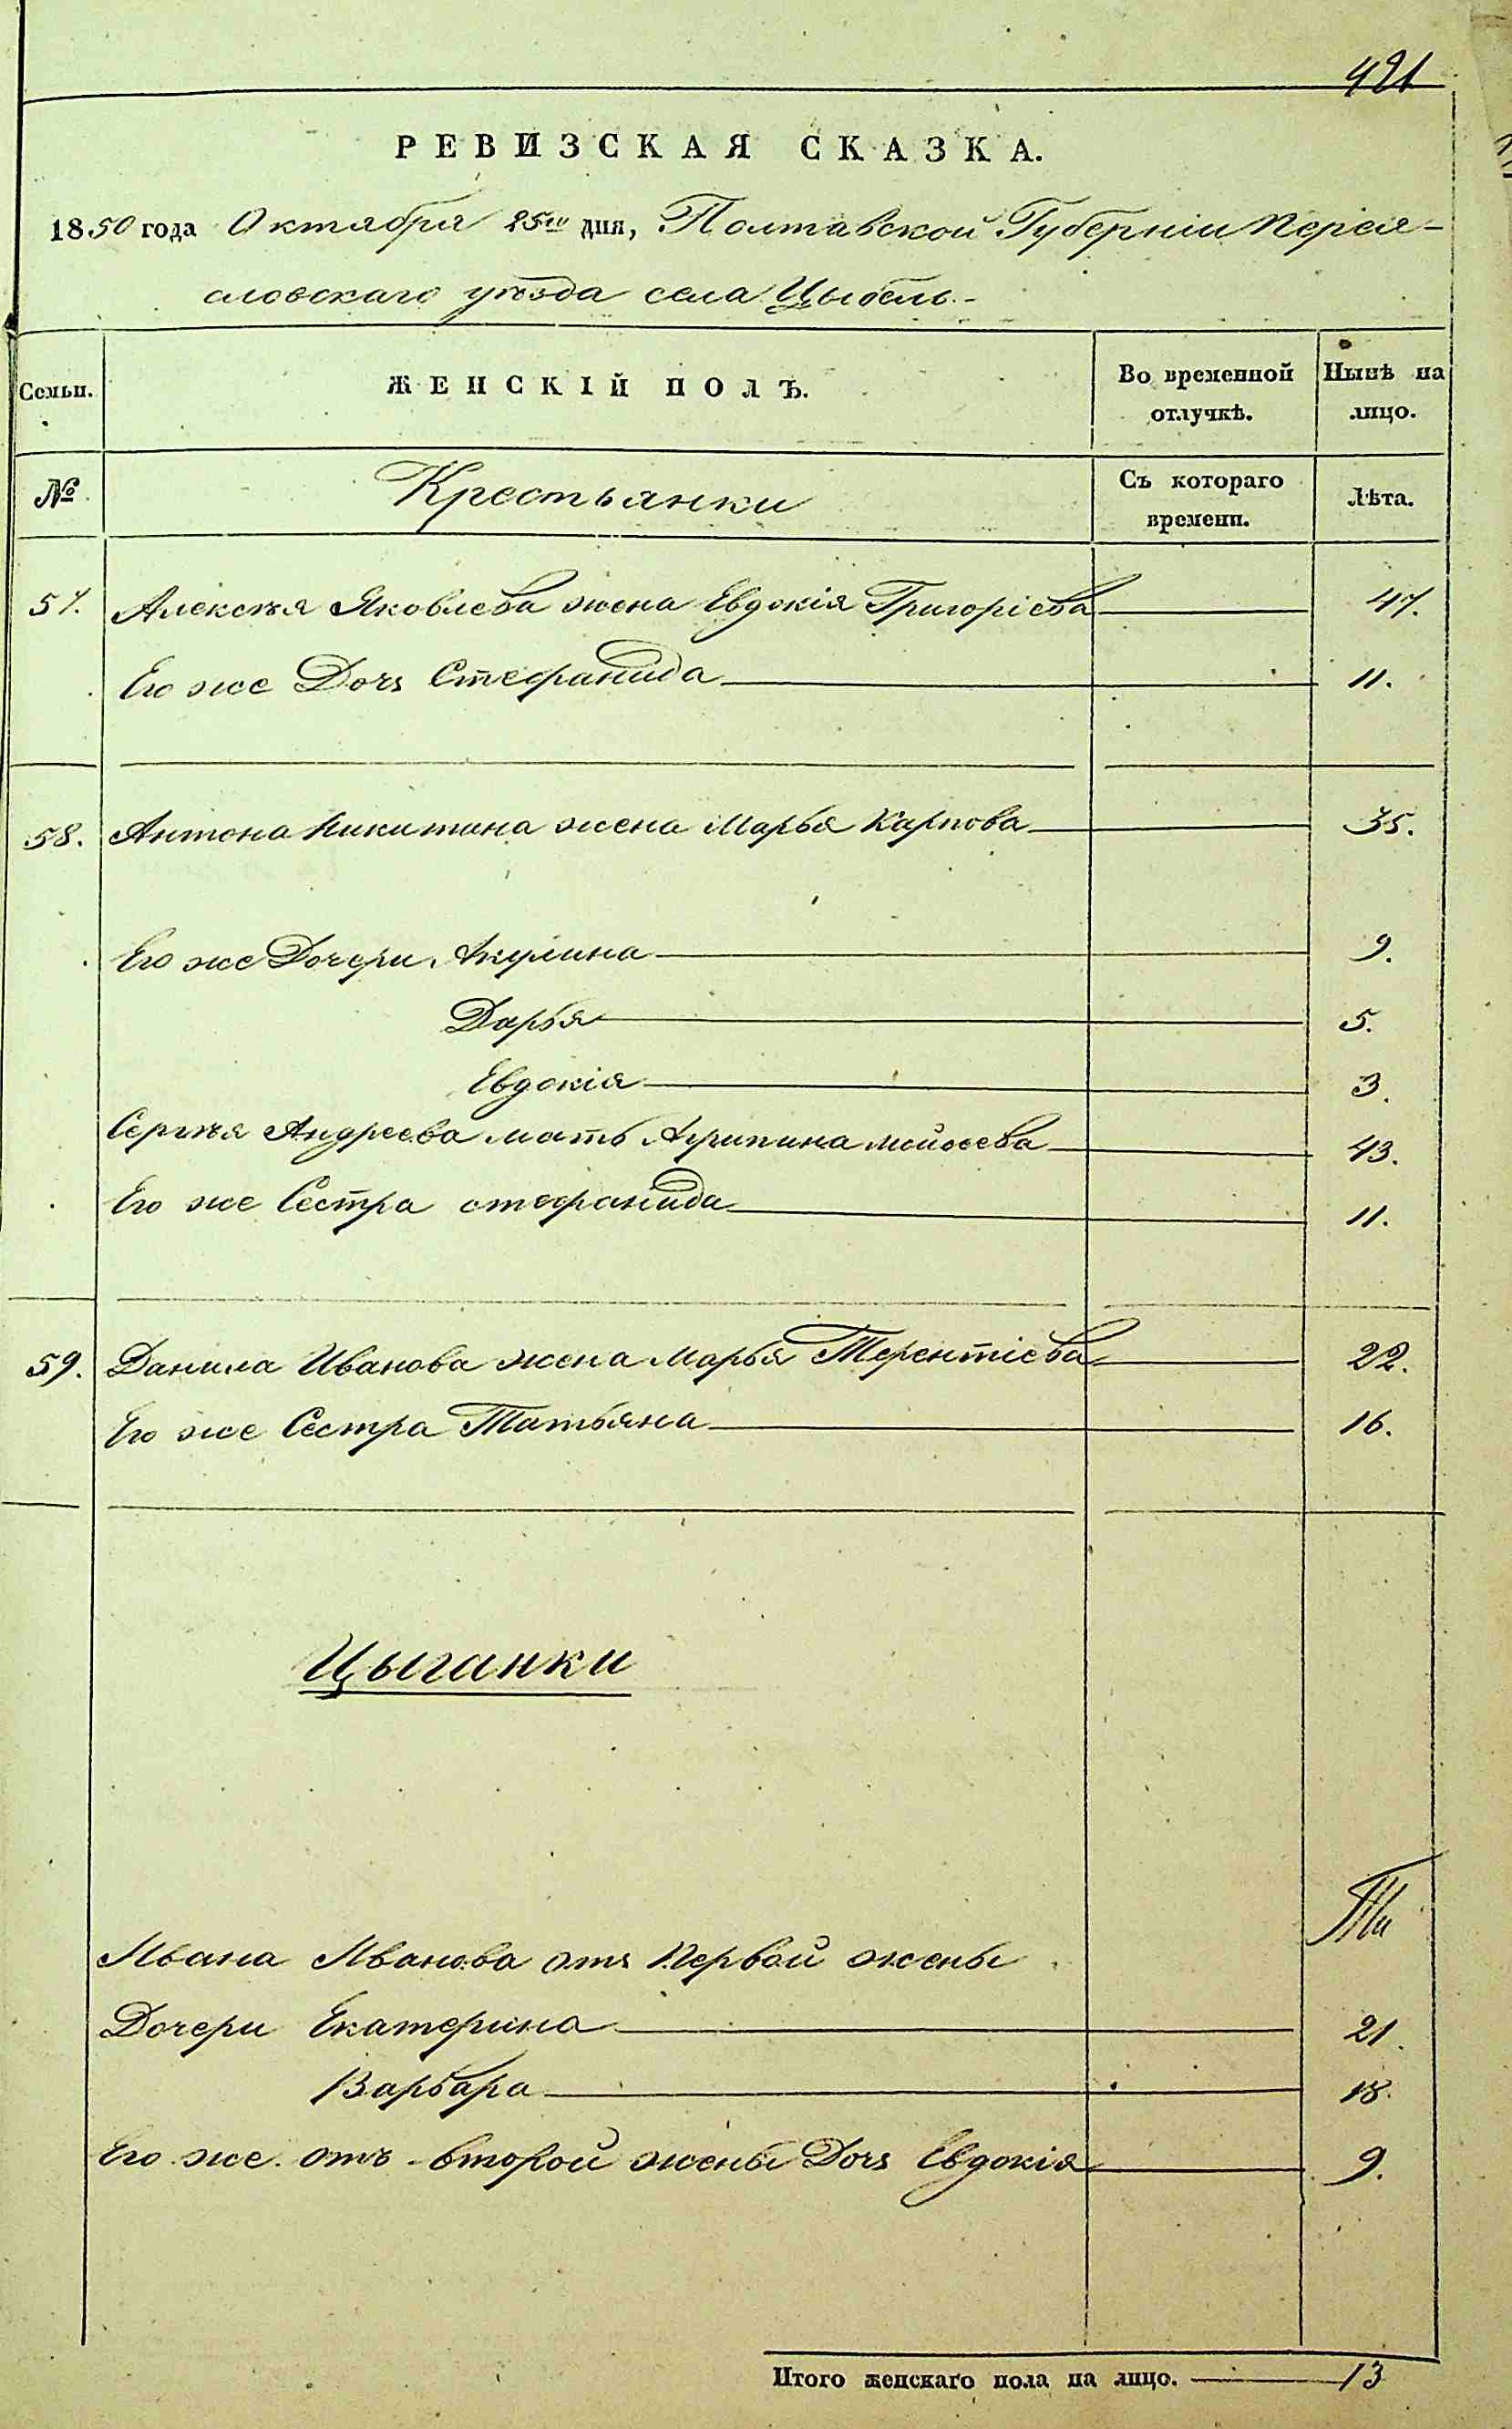 421
РЕВИЗСКАЯ СКАЗКА.
1850 года Октября 25го дня, Полтавской Губерніи Перея-
словскаго уѣзда села Цыбель.-
Семьи. ЖЕНСКІЙ ПОЛЪ. Во временной отлучкѣ. Нынѣ на лицо.
№ Крестьянки Съ котораго времени. Лѣта.
57. Алексѣя Яковлева жена Евдокія Григоріева 47.
Его же Дочь Стефанида 11.
58. Антона Никитина жена Марья Карпова 35.
Его же Дочери Акулина 9.
Дарья 5.
Евдокія 3.
Сергѣя Андреева мать Агрипина Мойсеева 43.
Его же Сестра стефанида 11.
59. Данила Иванова жена Марья Терентіева 22.
Его же Сестра Татьяна 16.
Цыганки
Ивана Иванова отъ Первой жены
Дочери Екатерина 21.
Варвара 18.
Его же отъ второй жены Дочь Евдокія 9.
Итого женскаго пола на лицо. 13